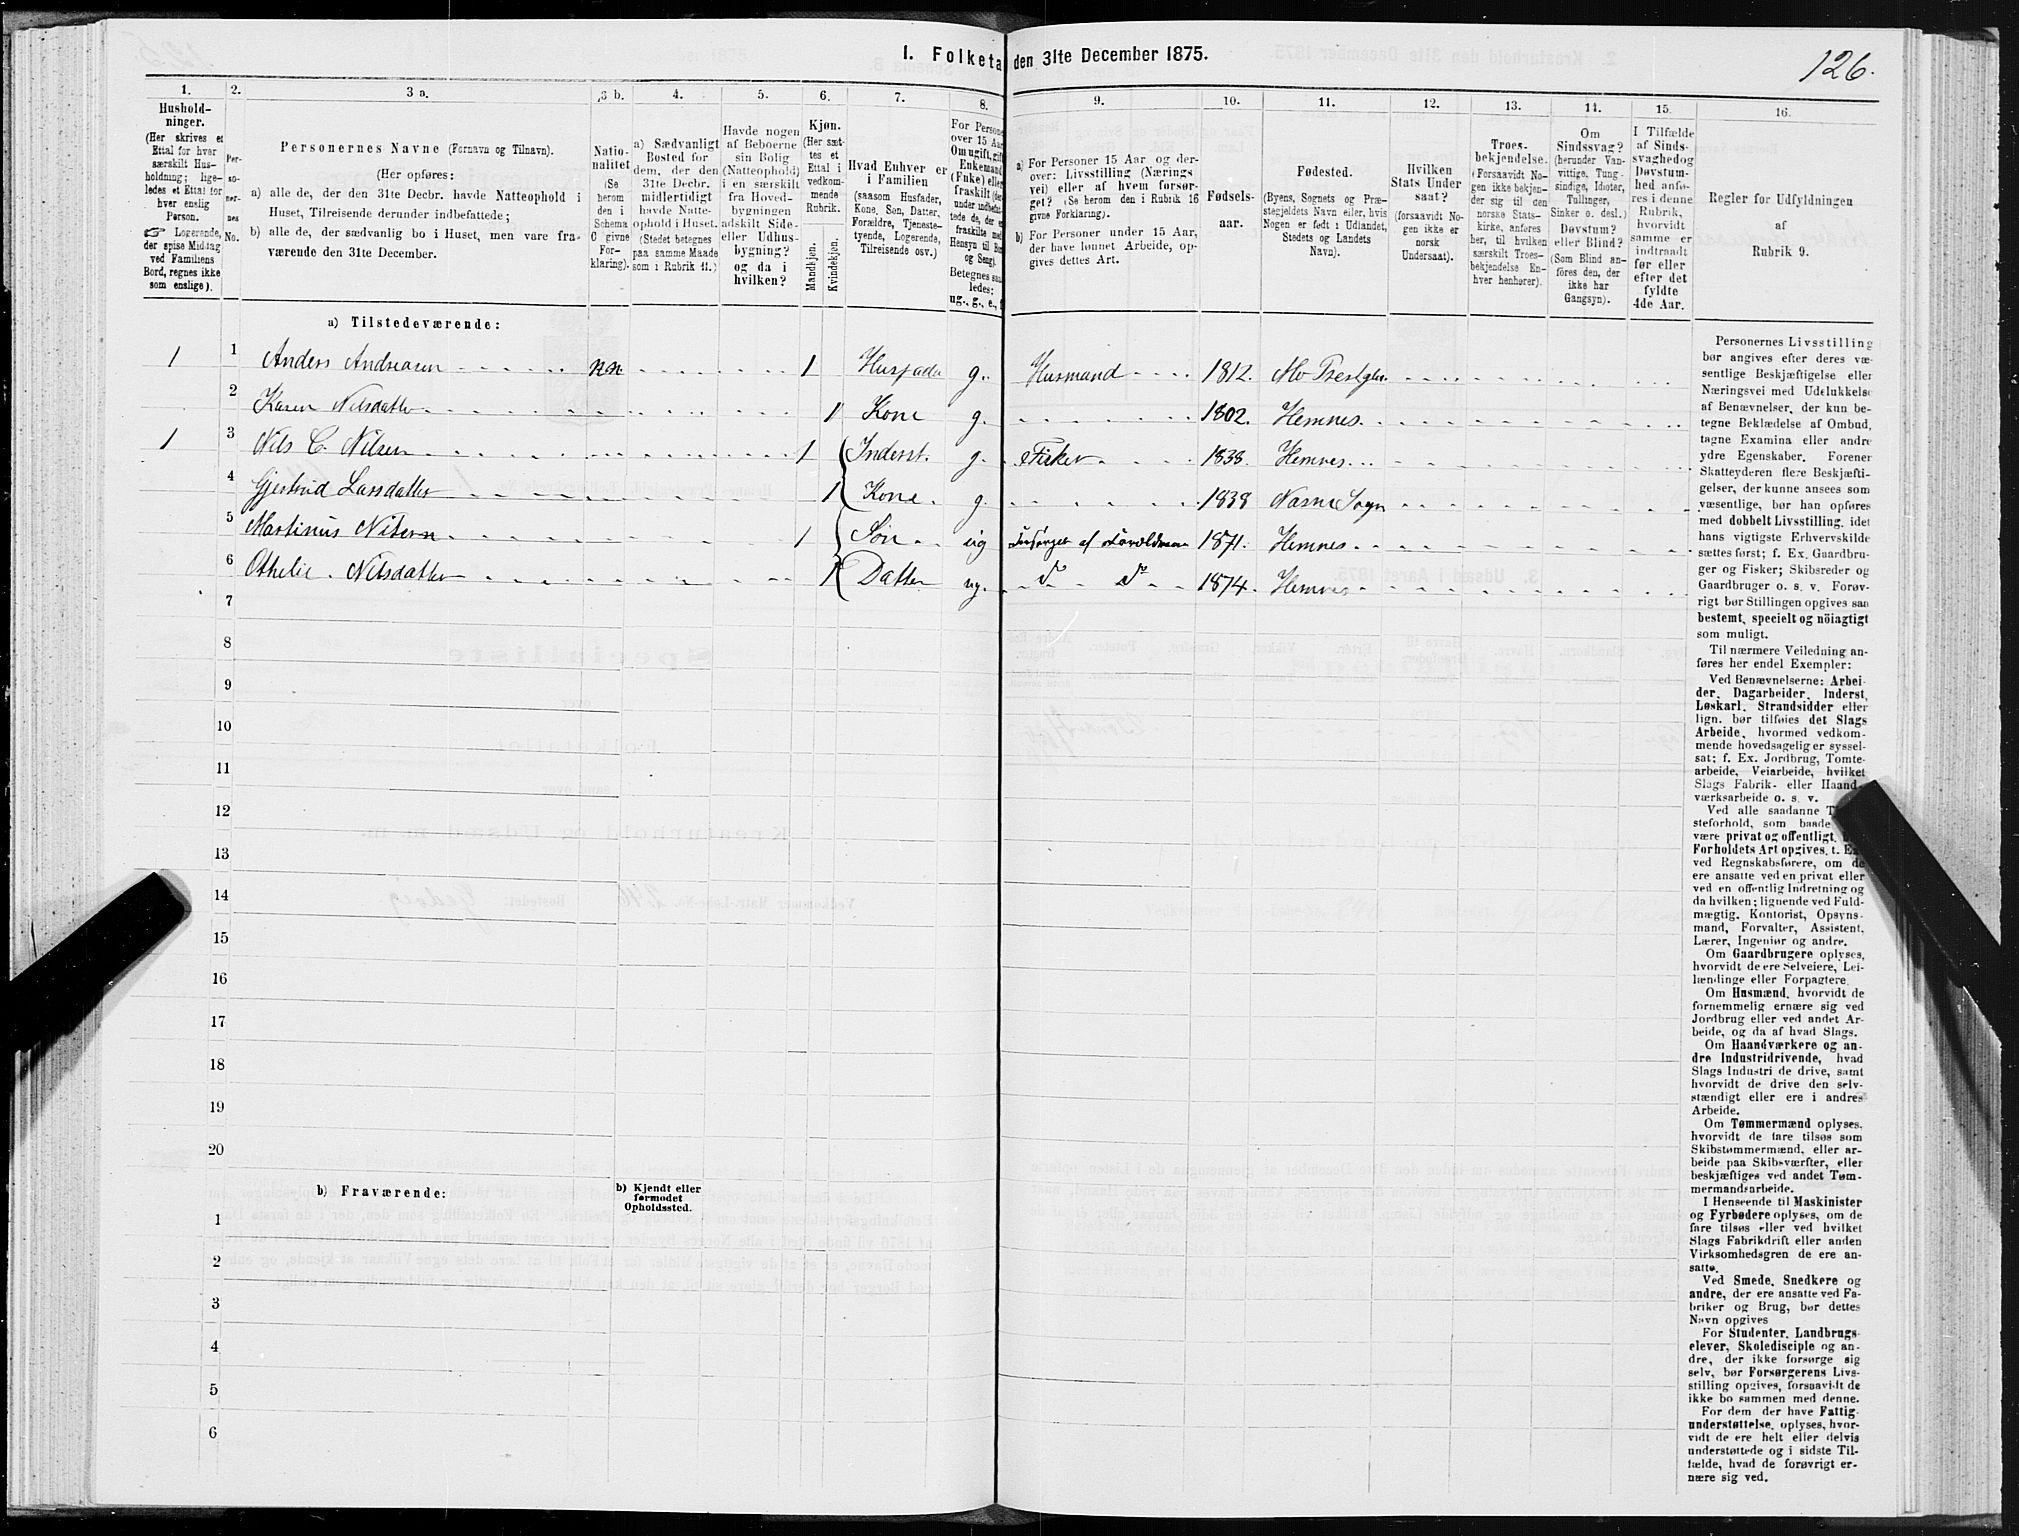 I. Folketa den 31te December 1875.
126.
1.
Hushold-
ninger.
(Her skrives et
Ettal for hver
særskilt Hus-
holdning; lige-
ledes et Ettal for
hver enslig
Person.
☞ Logerende,
der spise Middag
ved Familiens
Bord, regnes ikke
som enslige).
2.
Per-
so-
ner-
nes
No.
3 a.
Personernes Navne (Fornavn og Tilnavn).
(Her opføres:
a) alle de, der den 31te Decbr. havde Natteophold i
Huset, Tilreisende derunder indbefattede;
b) alle de, der sædvanlig bo i Huset, men vare fra-
værende den 31te December.
3 b.
Natio-
nalitet
(Se
herom
den i
Schema
C givne
For-
klaring).
4.
a) Sædvanligt
Bosted for
dem, der den
31te Decbr.
midlertidigt
havde Natte-
ophold i Huset.
(Stedet betegnes
paa samme Maade
som i Rubrik 11.)
5.
Havde nogen
af Beboerne
sin Bolig
(Natteophold)
i en særskilt
fra Hoved-
bygningen
adskilt Side-
eller Udhus-
bygning?
og da i
hvilken?
6.
Kjøn.
(Her sæt-
tes et
Ettal i
vedkom-
mende
Rubrik.
Mandkjøn.
Kvindekjøn.
7.
Hvad Enhver er
i Familien
(saasom Husfader,
Kone, Søn, Datter,
Forældre, Tjeneste-
tyende, Logerende,
Tilreisende osv.)
8.
For Persone
over 15 Aar
Om ugift, gift
Enkemand
(Enke) eller
fraskilt
Betegnes saa
ledes:
ug., g., e.,
9.
a) For Personer 15 Aar og der-
over: Livsstilling (Nærings
vei) eller af hvem forsør-
get? (Se herom den i Rubrik 16
givne Forklaring).
b) For Personer under 15 Aar,
der have lønnet Arbeide, op-
gives dettes Art.
10.
Fødsels-
aar.
11.
Fødested.
(Byens, Sognets og Præ-
stegjeldets Navn eller, hvis
Nogen er født i Udlandet,
Stedets og Landets
Navn).
12.
Hvilken
Stats Under
saat?
(forsaavidt No-
gen ikke er
norsk
Undersaat).
13.
Troes-
bekjendelse.
(Forsaavidt No-
gen ikke bekjen-
der sig til den
norske Stats-
kirke, anføres
her, til hvilken
særskilt Troes-
bekjendelse En-
hver henhører).
14.
Om
Sindssvag?
(herunder Van-
vittige, Tung-
sindige, Idioter,
Tullinger,
Sinker o. desl.)
Døvstum?
eller Blind?
(Som Blind an-
føres den, der
ikke har
Gangsyn).
15.
I Tilfælde
af Sinds-
svaghed og
Døvstum-
hed anfø-
res i denne
Rubrik,
hvorvidt
samme er
indtraadt
før eller
efter det
fyldte
4de Aar.
16.
Regler for Udfyldningen
af
Rubrik 9.
a) Tilstedeværende:
1 1 Anders Andreasen nn 1 Husfader g. Husmand 1812. Mo Prestgjer.
2 Karen Nilsdatter 1 Kone g. 1802. Hemnes.
1 3 Nils C. Nilsen 1 Inderst. g. Fisker 1838. Hemnes
4 Gjertrud Larsdatter 1 Kone. g. 1838 Nasne Sogn
5 Martinus Nilsen 1 Søn ug forsørget af Forældrene 1871. Hemnes
6 Othelie Nilsdatter 1 Datter ug. do do 1874. Hemnes
7
8
9
10
11
12
13
14
15
16
17
18
19
20
b) Fraværende:
b) Kjendt eller
formodet
Opholdssted.
1
2
3
4
5
6
Personernes Livsstilling
bør angives efter deres væ-
sentlige Beskjæftigelse eller
Næringsvei med Udelukkelse
af Benævnelser, der kun be-
tegne Beklædelse af Ombud,
tagne Examina eller andre
ydre Egenskaber. Forener
Skatteyderen flere Beskjæfti-
gelser, der kunne ansees som
væsentlige, bør han opføres
med dobbelt Livsstilling, idet
hans vigtigste Erhvervskilde
sættes først; f. Ex. Gaardbru-
ger og Fisker; Skibsreder og
Gaardbruger o. s. v. Forøv-
rigt bør Stillingen opgives saa
bestemt, specielt og nöiagtigt
som muligt.
Til nærmere Veiledning an-
føres her endel Exempler:
Ved Benævnelserne: Arbei-
der, Dagarbeider, Inderst,
Løskarl, Strandsidder eller
lign. bør tilføies det Slags
Arbeide, hvormed vedkom-
mende hovedsagelig er syssel-
sat; f. Ex. Jordbrug, Tomte-
arbeide, Veiarbeide, hvilket
Slags Fabrik- eller Haand-
værksarbeide o. s. v.
Ved alle saadanne
steforhold, som baade
være privat og offentligt,
Forholdets Art opgives, t. Ex
ved Regnskabsførere, om de
ere ansatte ved en privat eller
ved en offentlig Indretning og
da hvilken; lignende ved Fuld-
mægtig, Kontorist, Opsyns-
mand, Forvalter, Assistent,
Lærer, Ingeniør og andre.
Om Gaardbrugere oplyses,
hvorvidt de ere Selveiere, Lei-
lændinge eller Forpagtere.
Om Husmænd, hvorvidt de
fornemmelig ernære sig ved
Jordbrug eller ved andet Ar-
beide, og da af hvad Slags.
Om Haandværkere og an-
dre Industridrivende, hvad
Slags Industri de drive, samt
hvorvidt de drive den selv-
stændigt eller ere i andres
Arbeide.
Om Tømmermænd oplyses,
hvorvidt de fare tilsøs som
Skibstømmermænd, eller ar-
beide paa Skibsværfter, eller
beskjæftiges ved andet Tøm-
mermandsarbeide.
I Henseende til Maskinister
og Fyrbødere oplyses, om de
fare tilsøs eller ved hvilket
Slags Fabrikdrift eller anden
Virksomhedsgren de ere an-
satte.
Ved Smede, Snedkere og
andre, der ere ansatte ved Fa-
briker og Brug, bør dettes
Navn opgives
For Studenter, Landbrugs-
elever, Skoledisciple og an-
dre, der ikke forsørge sig
selv, bør Forsørgerens Livs-
stilling opgives, forsaavidt de
ikke bo sammen med denne.
For dem der have Fattig-
understøttelse, oplyses, hvor-
vidt de ere helt eller delvis
understøttede og i sidste Til-
fælde, hvad de forøvrigt er-
nære sig ved.